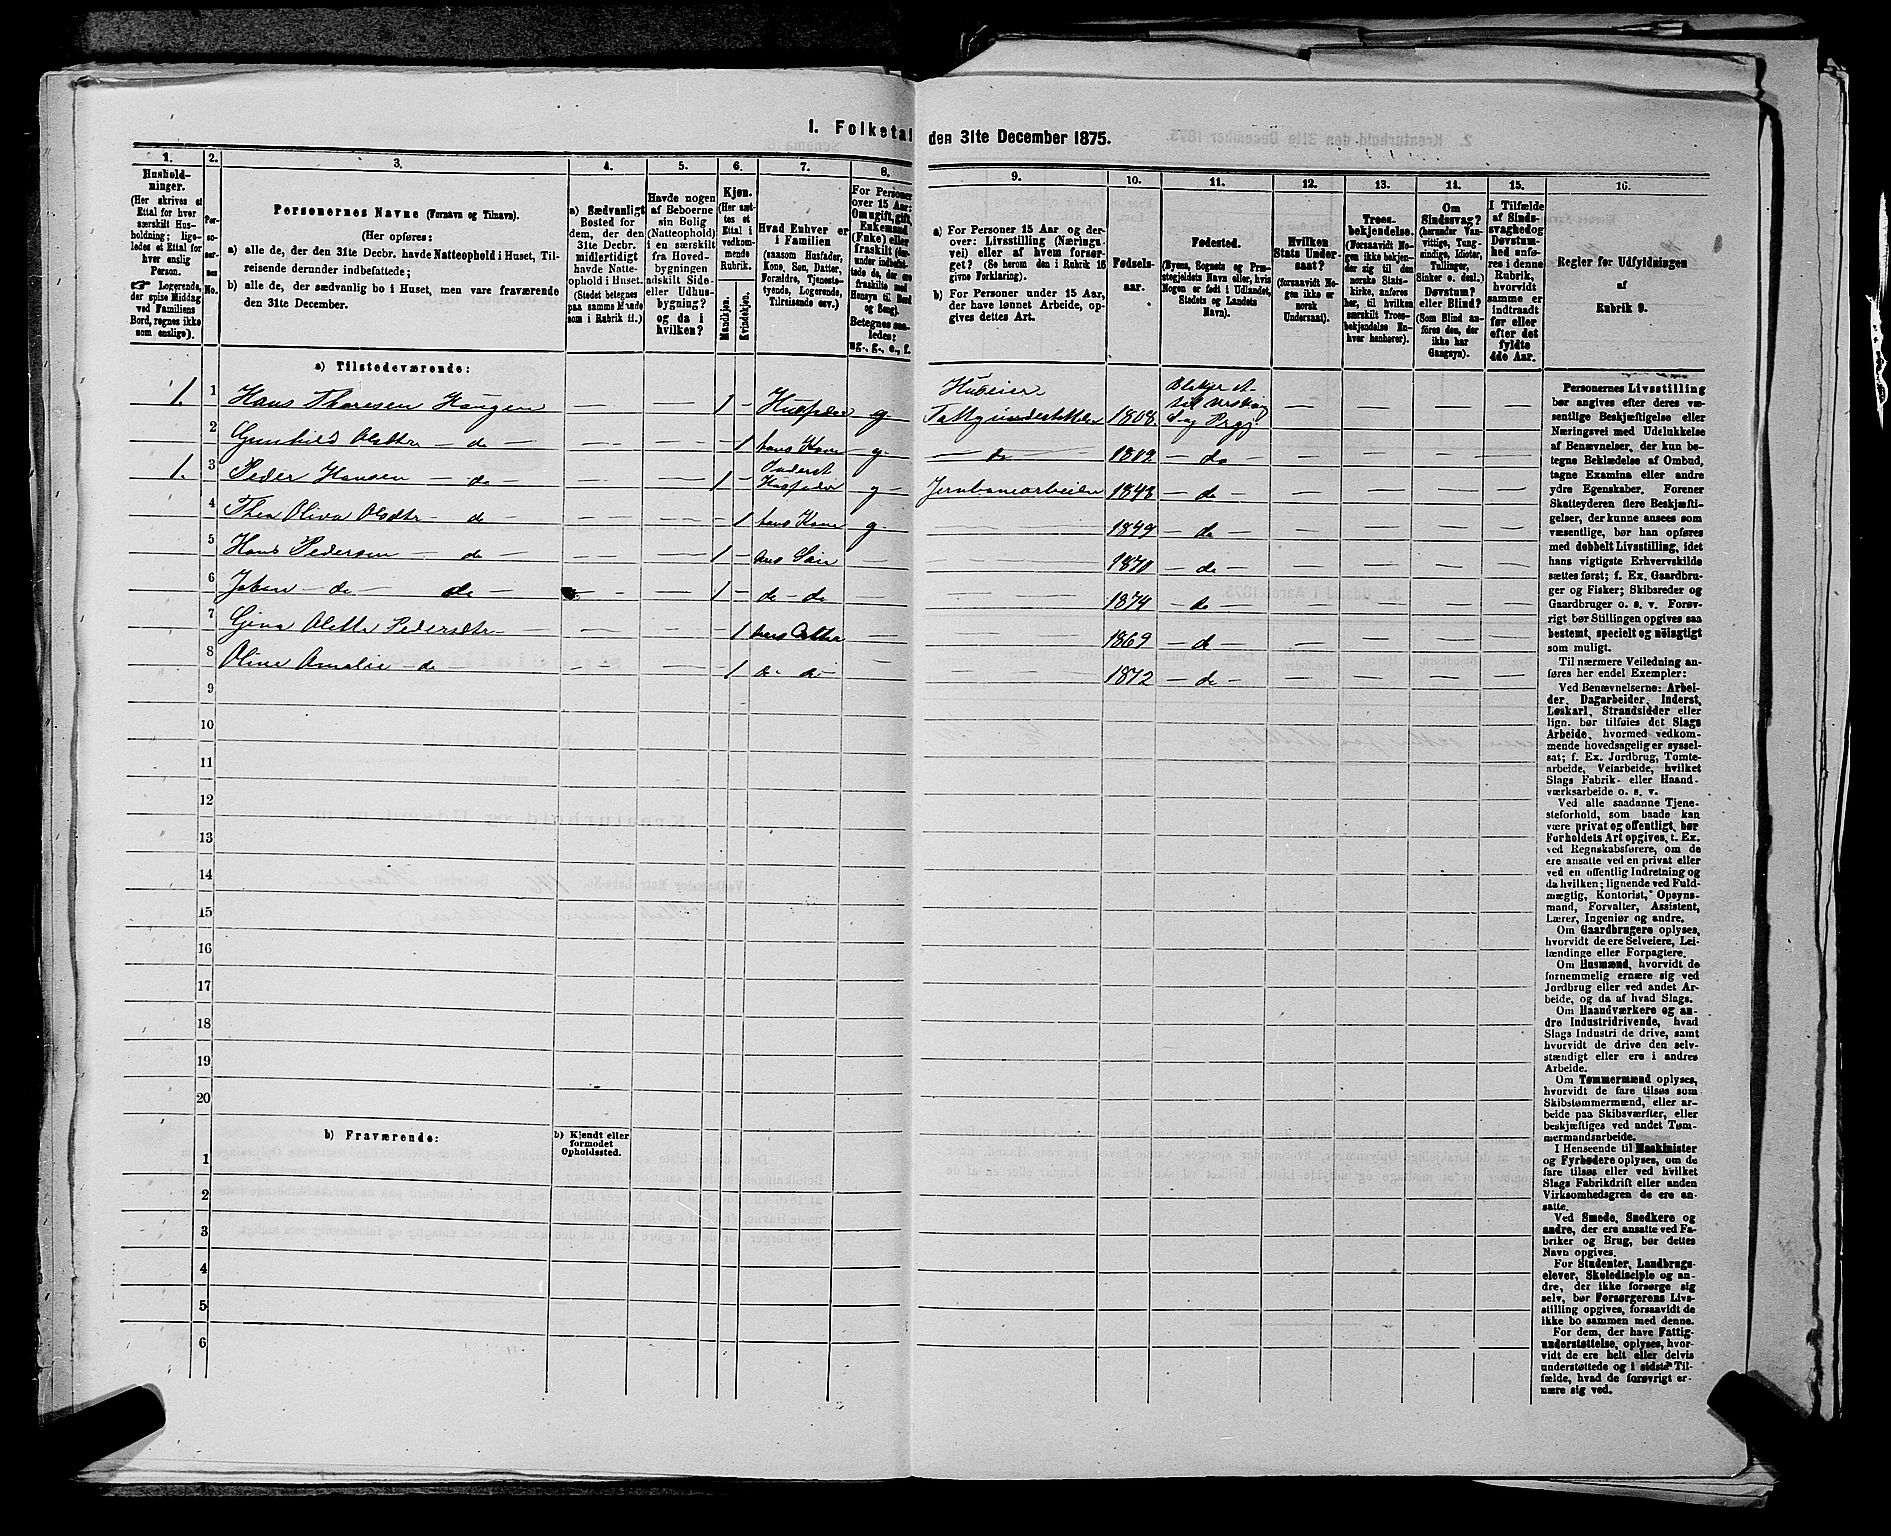 I. Folketal
den 31te December 1875.
1.
2.
3.
4.
5.
6.
7.
8.
9.
10.
11.
12.
13.
14.
15.
16.
Hushold-
ninger.
(Her skrives et
Ettal for hver
særskilt Hus-
holdning; lige-
ledes et Ettal for
hver enslig
Person.
☞ Logerende,
der spise Middag
ved Familiens
Bord, regnes ikke
som enslige).
Per-
so-
ner-
nes
No.
Personernes Navne (Fornavn og Tilnavn).
(Her opføres:
a) alle de, der den 31te Decbr. havde Natteophold i Huset, Til-
reisende derunder indbefattede;
b) alle de, der sædvanlig bo i Huset, men vare fraværende
den 31te December.
a) Sædvanligt
Bosted for
dem, der den
31te Decbr.
midlertidigt
havde Natte-
ophold i Huset.
(Stedet betegnes
paa samme Maade
som i Rubrik 11.)
Havde nogen
af Beboerne
sin Bolig
(Natteophold)
i en særskilt
fra Hoved-
bygningen
adskilt Side-
eller Udhus-
bygning?
og da i
hvilken?
Kjøn.
(Her sæt-
tes et
Ettal i
vedkom-
mende
Rubrik.
Mandkjøn.
Kvindekjøn.
Hvad Enhver er
i Familien
(saasom Husfader,
Kone, Søn, Datter,
Forældre, Tjeneste-
tyende, Logerende
Tilreisende osv.)
For Personer
over 15 Aar:
Om ugift, gift,
Enkemand
(Enke) eller
fraskilt (her-
under indbefat-
tede de, der ere
fraskilte med
Hensyn til Bord
og Seng).
Betegnes saa-
ledes:
ug., g., e., f.
a) For Personer 15 Aar og der-
over: Livsstilling (Nærings-
vei) eller af hvem forsør-
get? (Se herom den i Rubrik 16
givne Forklaring).
b) For Personer under 15 Aar,
der have lønnet Arbeide, op-
gives dettes Art.
Fødsels-
aar.
Fødested.
(Byens, Sognets og Præ-
stegjeldets Navn eller, hvis
Nogen er født i Udlandet,
Stedets og Landets
Navn).
Hvilken
Stats Under-
saat?
(forsaavidt No-
gen ikke er
norsk
Undersaat).
Troes-
bekjendelse.
(Forsaavidt No-
gen ikke bekjen-
der sig til den
norske Stats-
kirke, anføres
her, til hvilken
særskilt Troes-
bekjendelse En-
hver henhører).
Om
Sindssvag?
(herunder Van-
vittige, Tung-
sindige, Idioter,
Tullinger,
Sinker o. desl.).
Døvstum?
eller Blind?
(Som Blind an-
føres den, der
ikke har
Gangsyn).
I Tilfælde
af Sinds-
svaghed og
Døvstum-
hed anfø-
res i denne
Rubrik,
hvorvidt
samme er
indtraadt
før eller
efter det
fyldte
4de Aar.
Regler for Udfyldningen
af
Rubrik 9.
a) Tilstedeværende:
1. 1 Hans Thoresen Haugen — — 1 – Husfader g Huseier Fattigunderstøttelse 1808. Prgj — — — —
2 Gunhild Olsdtr — do — — — 1 hans Kone g — do — 1812 — do — — — —
1. 3 Peder Hansen — do — — — 1 – Inderst Husfader g Jernbanearbeider 1843 — do — — — — —
4 Thea Oliva Olsdtr — do — — 1 hans Kone g. — 1849 — do — — — — —
5 Hans Pedersen — do — — — 1 – hans Søn — — 1870 — do — — — — —
6 Johan — do — do — — — 1 – do – do — — 1874 — do — — — — —
7 Gina Olette Pedersdtr — — — 1 hans Datter — — 1869 — do — — — — —
8 Oline Amalie do — — 1 do – do — — 1872 — do — — — — —
9
10
11
12
13
14
15
16
17
18
19
20
b) Fraværende:
b) Kjendt eller
formodet
Opholdssted.
1
2
3
4
5
6
Personernes Livsstilling
bør angives efter deres væ-
sentlige Beskjæftigelse eller
Næringsvei med Udelukkelse
af Benævnelser, der kun be-
tegne Beklædelse af Ombud,
tagne Examina eller andre
ydre Egenskaber. Forener
Skatteyderen flere Beskjæfti-
gelser, der kunne ansees som
væsentlige, bør han opføres
med dobbelt Livsstilling, idet
hans vigtigste Erhvervskilde
sættes først; f. Ex. Gaardbru-
ger og Fisker; Skibsreder og
Gaardbruger o. s. v. Forøv-
rigt bør Stillingen opgives saa
bestemt, specielt og nøiagtigt
som muligt.
Til nærmere Veiledning an-
føres her endel Exempler:
Ved Benævnelserne: Arbei-
der, Dagarbeider, Inderst,
Løskarl, Strandsidder eller
lign. bør tilføies det Slags
Arbeide, hvormed vedkom-
mende hovedsagelig er syssel-
sat; f. Ex. Jordbrug, Tomte-
arbeide, Veiarbeide, hvilket
Slags Fabrik- eller Haand-
værksarbeide o. s. v.
Ved alle saadanne Tjene-
steforhold, som baade kan
være privat og offentligt, bør
Forholdets Art opgives, t. Ex.
ved Regnskabsførere, om de
ere ansatte ved en privat eller
ved en offentlig Indretning og
da hvilken; lignende ved Fuld-
mægtig, Kontorist, Opsyns-
mand, Forvalter, Assistent,
Lærer, Ingeniør og andre.
Om Gaardbrugere oplyses,
hvorvidt de ere Selveiere, Lei-
lændinge eller Forpagtere.
Om Husmænd, hvorvidt de
fornemmelig ernære sig ved
Jordbrug eller ved andet Ar-
beide, og da af hvad Slags.
Om Haandværkere og an-
dre Industridrivende, hvad
Slags Industri de drive, samt
hvorvidt de drive den selv-
stændigt eller ere i andres
Arbeide.
Om Tømmermænd oplyses,
hvorvidt de fare tilsøs som
Skibstømmermænd, eller ar-
beide paa Skibsværfter, eller
beskjæftiges ved andet Tøm-
mermandsarbeide.
I Henseende til Maskinister
og Fyrbødere oplyses, om de
fare tilsøs eller ved hvilket
Slags Fabrikdrift eller anden
Virksomhedsgren de ere an-
satte.
Ved Smede, Snedkere og
andre, der ere ansatte ved Fa-
briker og Brug, bør dettes
Navn opgives.
For Studenter, Landbrugs-
elever, Skoledisciple og an-
dre, der ikke forsørge sig
selv, bør Forsørgerens Livs-
stilling opgives, forsaavidt de
ikke bo sammen med denne.
For dem, der have Fattig-
understøttelse, oplyses, hvor-
vidt de ere helt eller delvis
understøttede og i sidste Til-
fælde, hvad de forøvrigt er-
nære sig ved.